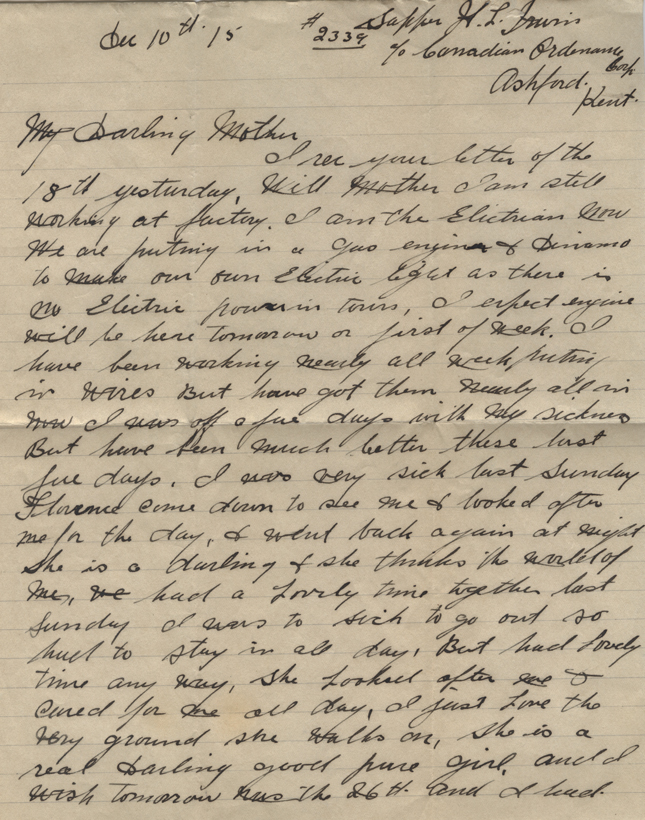 Dec 10th 15
# 2339 Sapper H. L. Irwin
c/o Canadian Ordenance Corp
Ashford.
Kent.
My Darling Mother
I rec your letter of the
18th yesterday, Well Mother I am still
working at factory. I am the Elictrian Now
We are puting in a gas engine & Dinamo
to make our own Electric light as there is
no Electric power in town, I expect engine
will be here tomorrow or first of week. I
have been working nearly all week puting
in wires But have got them nearly all in
now I was off a fue days with my sickness
But have been much better these last
fue days. I was very sick last Sunday
Florence come down to see me & looked after
me for the day, & went back again at night
She is a darling & she thinks the world of
me, we had a Lovely time together last
Sunday I was to sick to go out so
had to stay in all day, But had Lovely
time any way, She Looked after me &
cared for me all day, I just Love the
Very ground she walks on, She is a
real Darling good pure girl, and I
wish tomorrow was the 26th and I had